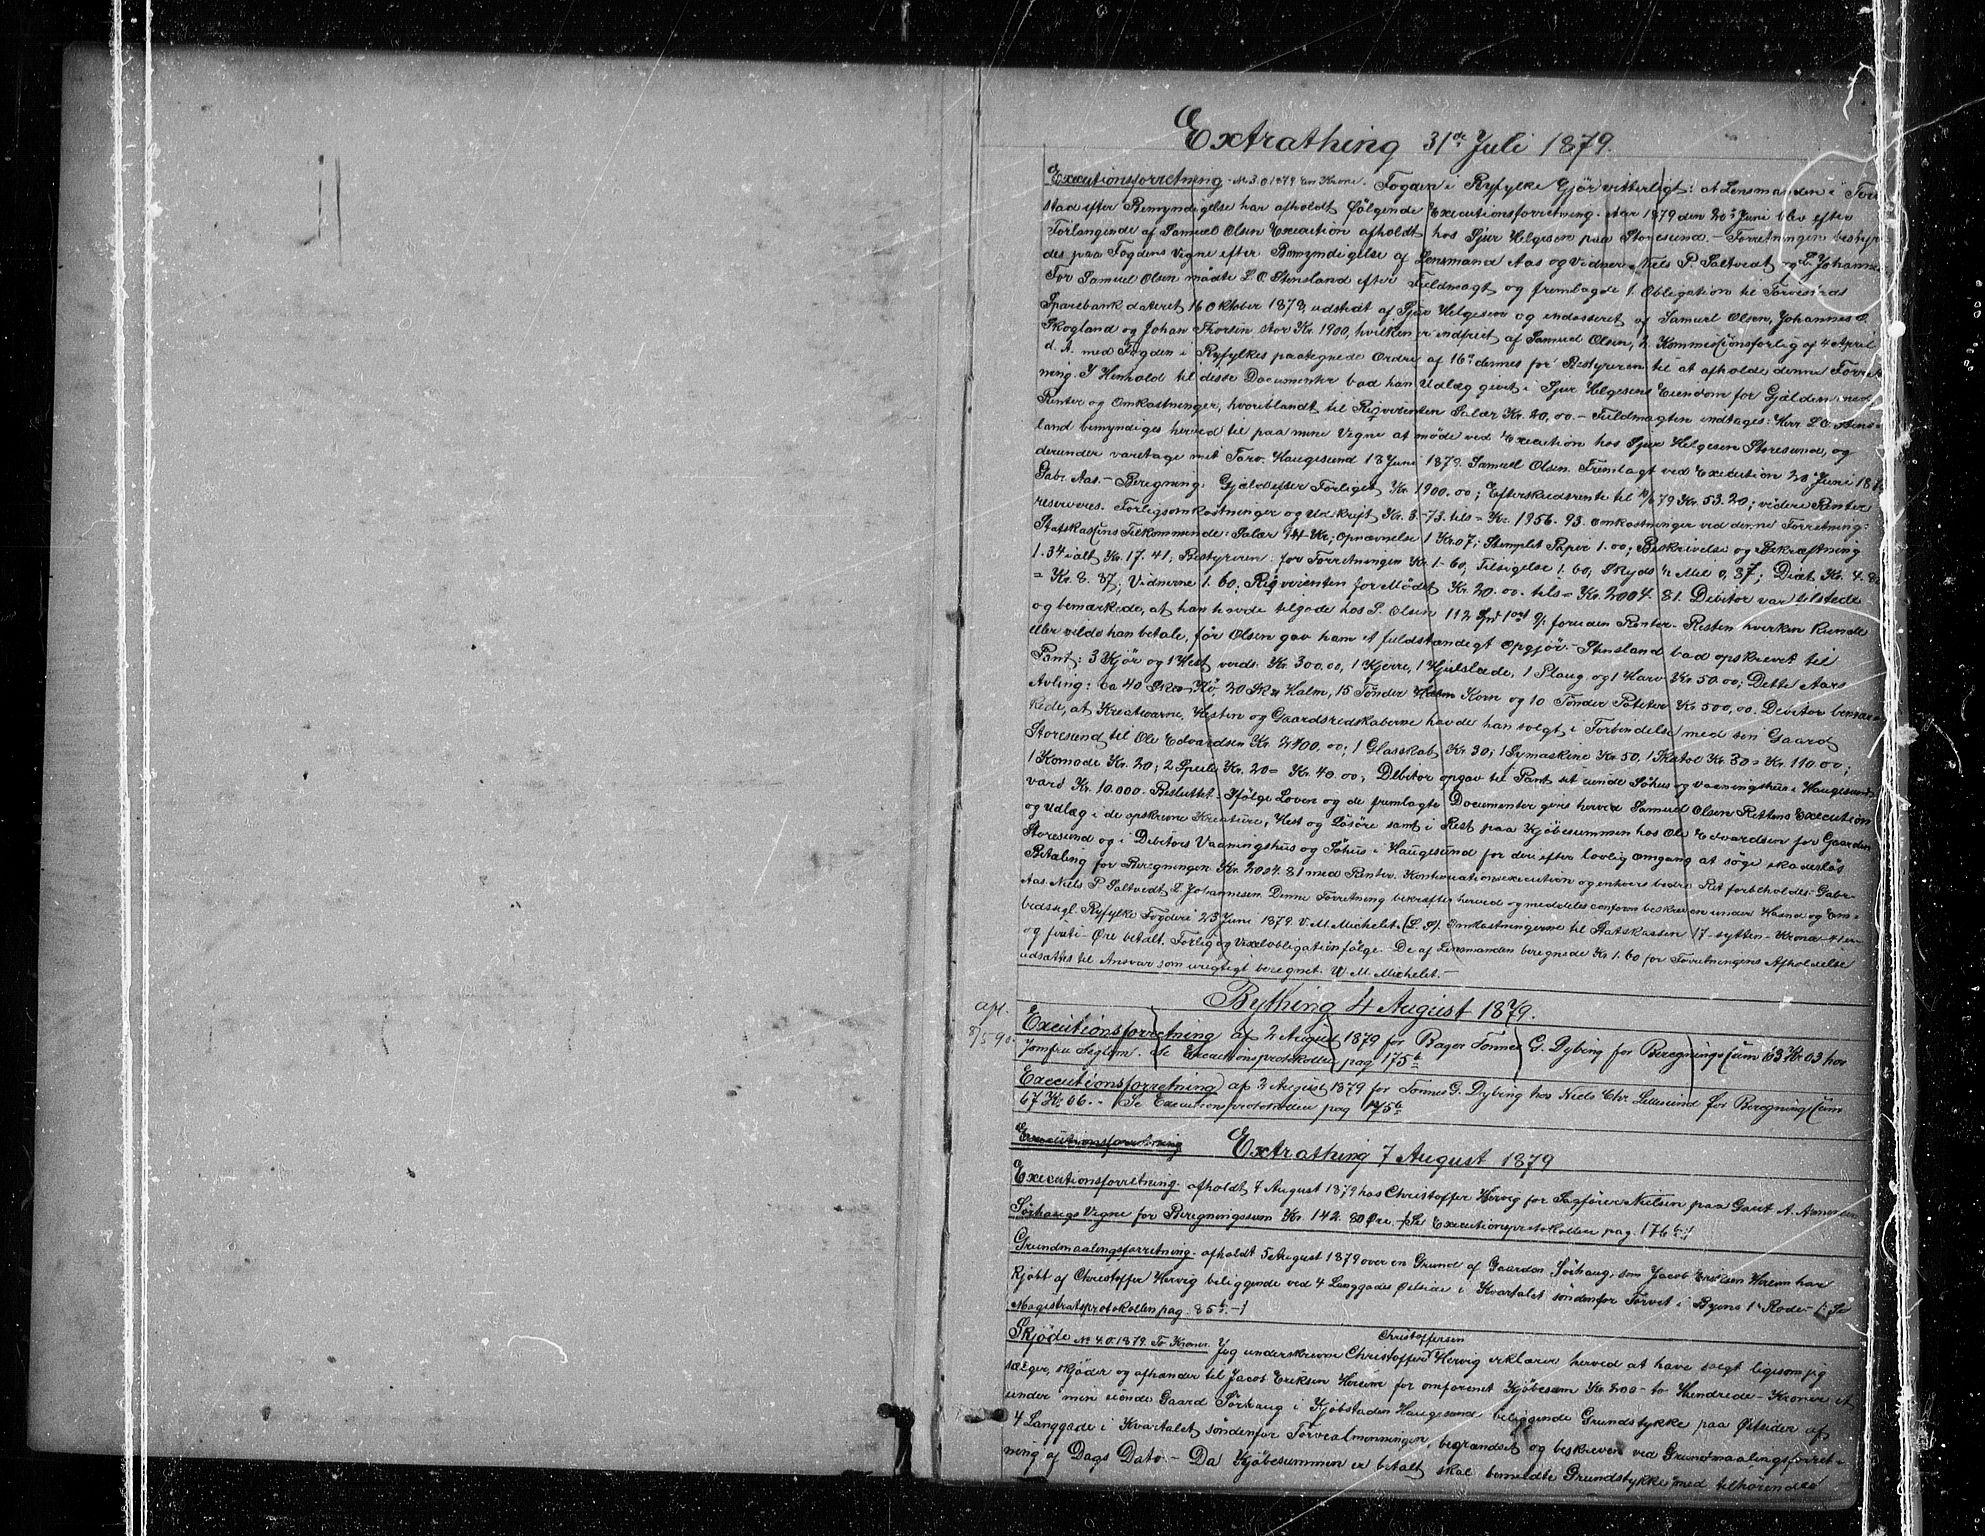 Extrathing 31te Juli 1879.
Executionsforretning. No 3.0.1879 En Krone. Fogden i Ryfylke Gjør vitterligt: at Lensmanden i Tor-
stad efter Bemyndigelse har afholdt følgende Executionsforretning. Aar 1879 den 20de Juni blev efter
Forlangende af Samuel Olsen Execution afholdt hos Sjur Helgesen paa Storesund. - Forretningen besty-
des paa Fogdens Vegne efter Bemyndigelse af Lensmand Aas og Vidner: Niels P. Saltvedt og L. Johannes
For Samuel Olsen mødte L. O. Stensland efter Fuldmagt og fremlagde 1. Obligation til Torvestads
Sparebank dateret 16 Oktober 1878, udstedt af Sjur Helgesen og endosseret af Samuel Olsen, Johannes O.
Skogland og Johan Thorsen stor Kr. 1900, hvilken er indfriet af Samuel Olsen, 2. Kommissionsforlig af 4 April
d. A. med Fogden i Ryfylkes paategnede Ordre af 16de dennes for Bestyreren til at afholde denne Forret-
ning. I Henhold til disse Documenter bad han Udlæg givet i Sjur Helgesens Eiendom for Gjælden med
Renter og Omkostninger, hvoriblandt til Rekvirenten Salær Kr. 20,00. - Fuldmagten indtages: Herr L. O. Stens-
land bemyndiges herved til paa mine Vegne at møde ved Execution hos Sjur Helgesen Storesund, og
derunder varetage mit Tarv. Haugesund 18 Juni 1879. Samuel Olsen. Fremlagt ved Execution 20 Juni 1879
Gabr. Aas. - Beregning: Gjæld efter Forliget Kr. 1900.00; Efterskudsrente til 79 Kr. 53.20; videre Renter
reserveres. Forligsomkostninger og Udskrift Kr. 3-73 tils = Kr. 1956.93. Omkostninger ved denne Forretning:
Statskassens Tilkommende: Salær 14 Kr; Opnævnelse 1 Kr. 07; Stemplet Papir 1.00; Beskrivelse og Bekræftning
1.34 ialt Kr. 17.41; Bestyreren: for Forretningen Kr. 1-60, Tilsigelse 1.60, Skyds Mil 0,37; Diæt Kr. 4.80
= Kr. 8.37; Vidnerne 1.60; Rekvirenten for Mødet Kr. 20.00. tils = Kr. 2004.81. Debitor var tilstede
og bemærkede, at han havde tilgode hos S. Olsen 112 Spd 1 ort foruden Renter. Resten hverken kunde
eller vilde han betale, før Olsen gav ham et fuldstændigt Opgjør. - Stensland bad opskrevet til
Pant: 3 Kjør og 1 Hest værd: Kr. 300.00, 1 Kjerre, 1 Hjulslæde, 1 Plaug og 1 Harv Kr 50.00; Dette Aars
Avling: ca 40 Hø, 20 Halm, 15 Tønder Korn og 10 Tønder Poteter Kr 500,00. Debitor bemær-
kede, at Kreaturene, Hesten og Gaardsredskaberne havde han solgt i Forbindelse med sen Gaard
Storesund til Ole Edvardsen Kr. 2400.00; 1 Glasskab Kr. 30; 1 Symaskine Kr. 50, 1 Skatol Kr. 30 = Kr. 110.00;
1 Komode Kr. 20; 2 Speile Kr. 20 = Kr. 40.00; Debitor opgav til Pant sit iende Søhus og Vaaningshus i Haugesund
værd Kr. 10.000. Besluttet: Ifølge Loven og de fremlagte Documenter gives herved Samuel Olsen Rettens Execution
og Udlæg i de opskrevne Kreature, Hest og Løsøre samt i Rest paa Kjøbesummen hos Ole Edvardsen for Gaarden
Storesund og i Debitors Vaaningshus og Søhus i Haugesund for deri efter lovlig Omgang at søge skadesløs
Betaling for Beregningen Kr. 2004.81 med Renter. Kontinuationsexecution og enhver bedre Ret forbeholdes. Gabr.
Aas. Niels P Saltvedt. L. Johannesen. Denne Forretning bekræftes herved og meddeles conform beskreven under Haand og Em-
bedssegl. Ryfylke Fogderi 23 Juni 1879. V. M. Michelet (L. S). Omkostningerne til Statskassen 17 - sytten - Kroner 41 en
og firti - Øre betalt. Forlig og Vexelobligation følge. De af Lensmanden beregnede Kr 1.60 for Forretningens Afholdelse
udsættes til Ansvar som urigtigt beregnet. V. M. Michelet. -
Bything 4 August 1879.
apl.
8/5 90.
Executionsforretning af 2 August 1879 for Bager Tønnes G. Dybing for Beregningssum 63 Kr. 03 hos
Jomfru Seglem. Se Executionsprotokollen pag 175b
Executionsforretning af 2 August 1879 for Tønnes G. Dybing hos Niels Chr. Lillesund for Beregningssum
67 Kr 66. - Se Executionsprotokollen pag 175b
Executionsforretning
Extrathing 7 August 1879
Executionsforretning. afholdt 4 August 1879 hos Christoffer Hervig for Sagfører Nielsen paa Gaut A.
Sørhaugs Vegne for Beregningssum Kr. 142.80 Øre - /: Se Executionsprotokollen pag. 176b :/
Grundmaalingsforretning. afholdt 5 August 1879 over en Grund af Gaarden Sørhaug, som Jacob Eriksen Hereim har
kjøbt af Christoffer Hervig beliggende ved 4 Langgades Østside i Kvartalet søndenfor Torvet i Byens 1ste Rode - /: Se
Magistratsprotokollen pag. 85b. - /
Skjøde No 4.0.1879. To Kroner. Jeg underskrevne Christoffer Christoffersen Hervig erklærer herved at have solgt ligesom jeg
sælger, skjøder og afhænder til Jacob Eriksen Hereim for omforenet Kjøbesum Kr. 200 - to Hundrede - Kroner et
under min eiende Gaard Sørhaug i Kjøbstaden Haugesund beliggende Grundstykke paa Østsiden af
4 Langgade i Kvartalet søndenfor Torvealmenningen, begrændset og beskreven ved Grundmaalingsforret-
ning af Dags Dato. - Da Kjøbesummen er betalt skal bemeldte Grundstykke med tilhørende